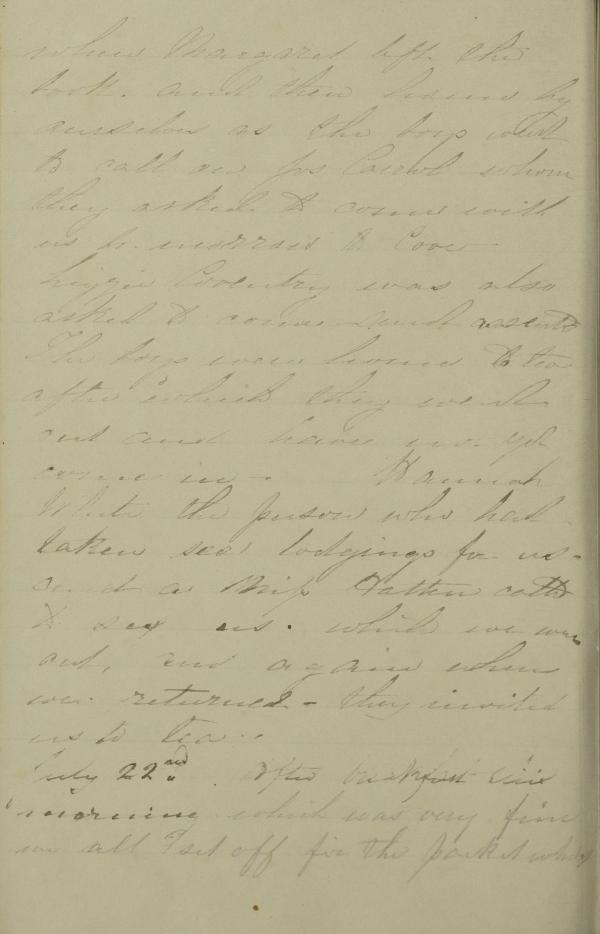 when Margaret left the
book. and then home by
ourselves as the boys went
to call on Jos Carrol whom
they asked to come with
us to-morrow to Cove -
Lizzie Coventry was also
asked to come and
The boys were home to tea
after which they went
out and have not yet
come in - Hannah
White the person who had
taken sea lodgings for us -
and a Miss called
to see us. while we were
out, and again when
we returned - they invited
us to tea -
July 22nd. After breakfast this
morning which was very fine
we all set off for the packet which